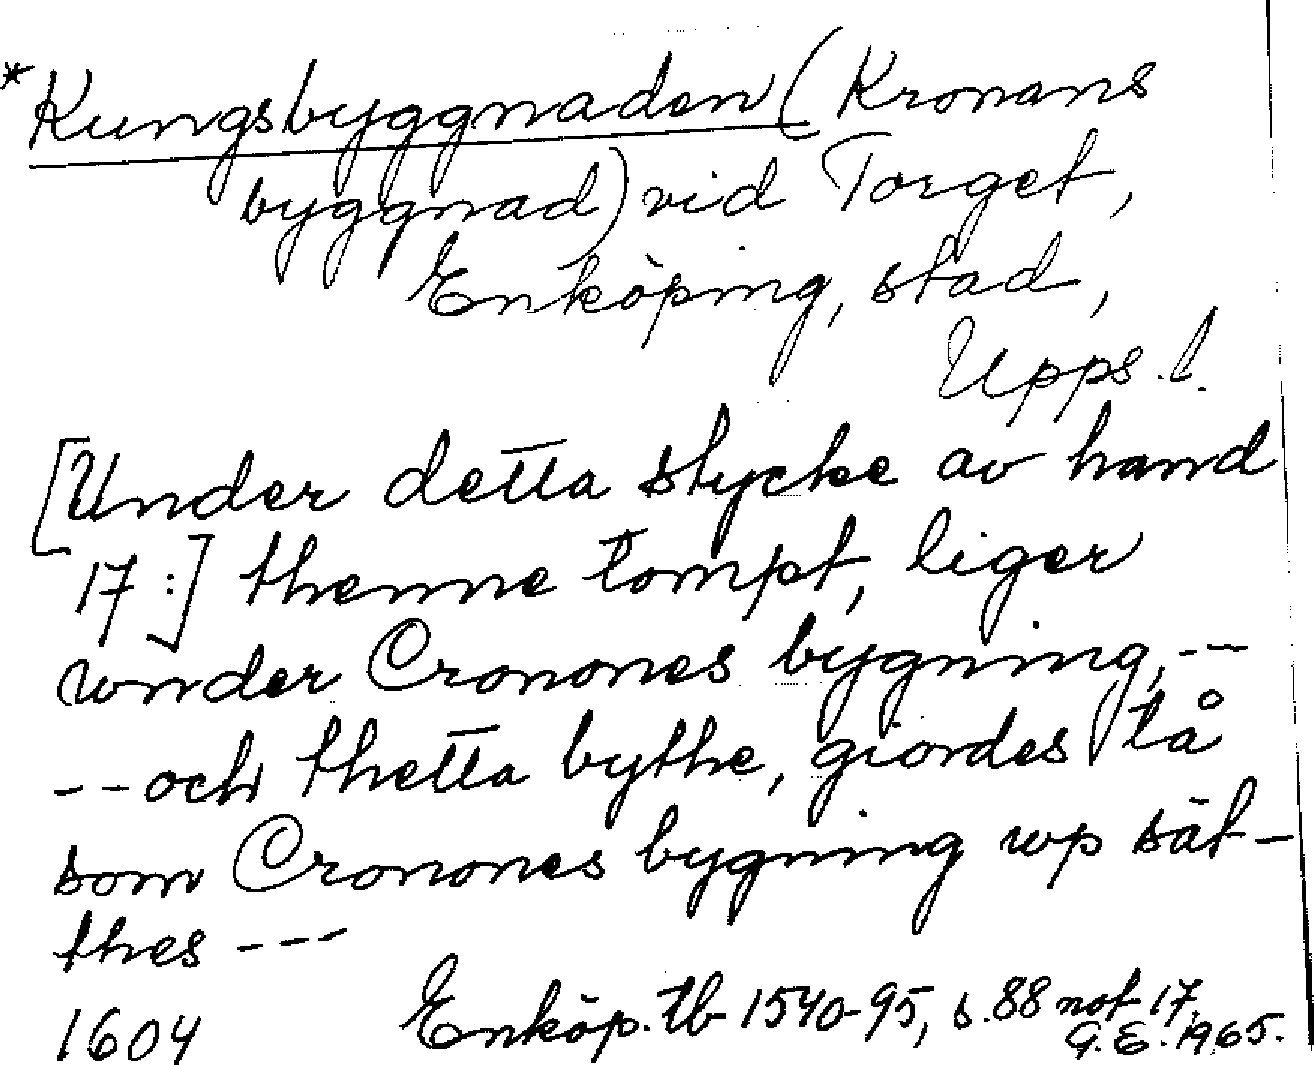 *Kungsbyggnaden (Kronans
byggnad) vid Torget,
Enköping, stad,
Upps. l.
[Under detta stycke av hand
17:] thenne tompt, liger
wnder Cronones bygning, --
-- och thetta bythe, giordes tå
som Cronones bygning wp sät-
thes ---
1604 Enköp. tb 1540-95, s. 88 not 17.
G.E. 1965.